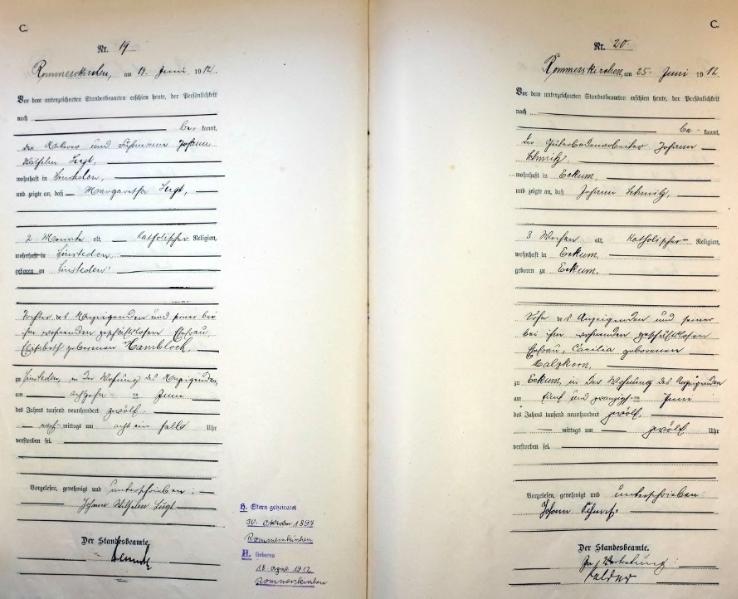 C.
Nr. 19
Rommerskirchen, am 19. Juni 1912.
Vor dem unterzeichneten Standesbeamten erschien heute, der Persönlichkeit
nach
be kannt,
der und Johann
Wilhelm
wohnhaft in Sinsteden,
und zeigte an, daß Margaretha
2 Monate alt, katholischer Religion,
wohnhaft in Sinsteden,
geboren zu Sinsteden
Tochter des Anzeigenden und seiner bei
ihm wohnenden geschäftslosen Ehefrau
Elisabeth geborenen Hambloch,
zu Sinsteden, in der Wohnung des Anzeigenden,
am Juni
des Jahres tausend neunhundert zwölf
mittags um acht ein halb Uhr
verstorben sei.
Vorgelesen, genehmigt und unterschrieben:
Johann Wilhelm
Der Standesbeamte.
H. Eltern geheiratet
30. Oktober 1897
Rommerskirchen
H. Geboren
1912
Rommerskirchen
C.
Nr. 20
Rommerskirchen, am 25. Juni 1912
Vor dem unterzeichneten Standesbeamten erschien heute, der Persönlichkeit
nach
be kannt,
der Güterbodenarbeiter Johann
Schmitz
wohnhaft in Eckum,
und zeigte an, daß Johann Schmitz,
3 Wochen alt, katholischer Religion,
wohnhaft in Eckum,
geboren zu Eckum,
Sohn des Anzeigenden und seiner
bei ihm wohnenden geschäftslosen
Ehefrau, Cäcilia geborenen
zu Eckum, in der Wohnung des Anzeigenden
am fünf und zwanzigsten Juni
des Jahres tausend neunhundert zwölf
mittags um zwölf Uhr
verstorben sei.
Vorgelesen, genehmigt und unterschrieben:
Johann Schmitz
Der Standesbeamte.
In Vertretung: